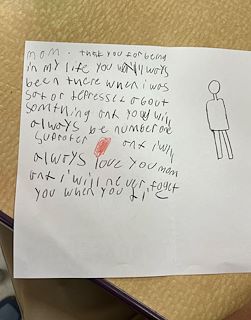 mom. thank you for being
in my life you will always
been there when i was
sat or depressed about
something ant you will
always be number one
supporter ant i will
always love you mom
ant i will never foget
you when you die